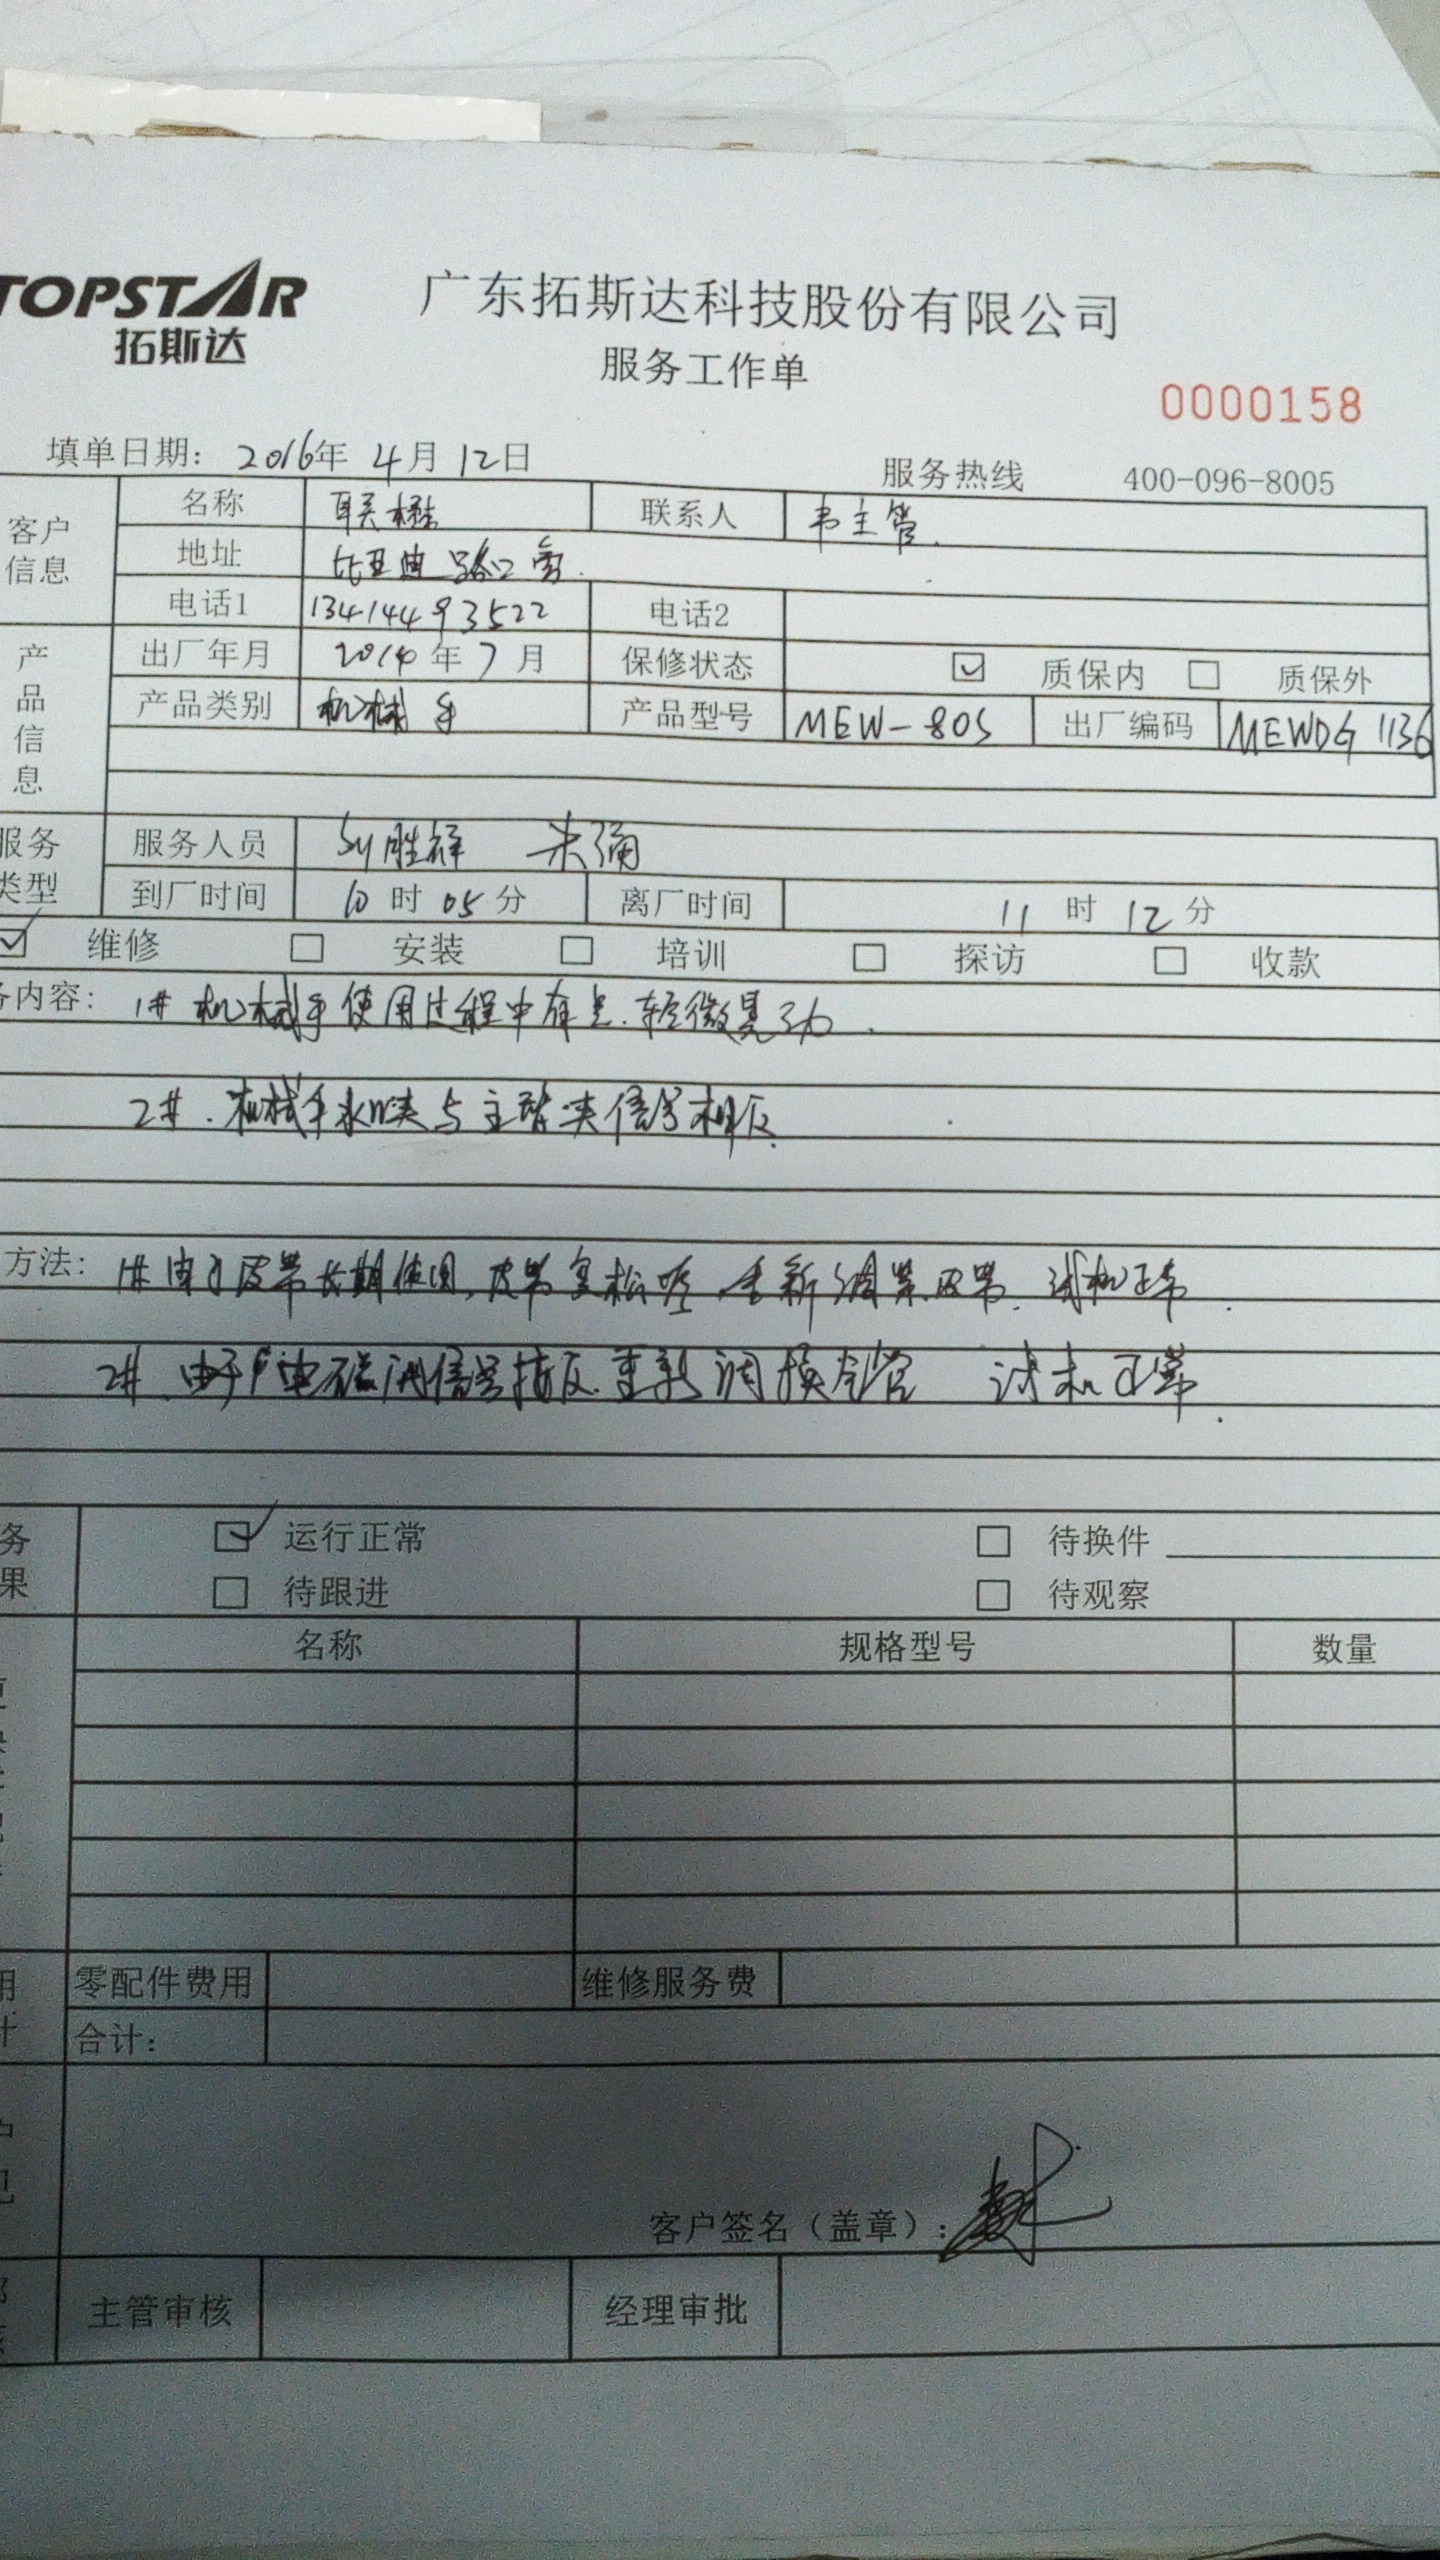 TOPSTAR
拓斯达
广东拓斯达科技股份有限公司
服务工作单
0000158
填单日期: 2016年 4月 12日
服务热线 400-096-8005
客户信息
名称 联 联系人 韦主管
地址 比亚迪路口旁
电话1 13414493522 电话2
产品信息
出厂年月 2014年7月 保修状态 质保内 质保外
产品类别 机械手 产品型号 MEW-80S 出厂编码 MEWDG 1136
服务类型
服务人员 刘胜祥
到厂时间 10时05分 离厂时间 11时12分
维修 安装 培训 探访 收款
务内容: 1# 机械手使用过程中有点轻微晃动.
2#. 机械手水口夹与主臂夹信号相反.
方法: 1#由于皮带长期使用,皮带变松,重新调紧皮带.试机正常.
2#.由于电磁阀信号接反.重新调换气管 试机正常.
务果
运行正常 待换件
待跟进 待观察
名称 规格型号 数量
零配件费用 维修服务费
合计:
客户签名(盖章):
主管审核 经理审批